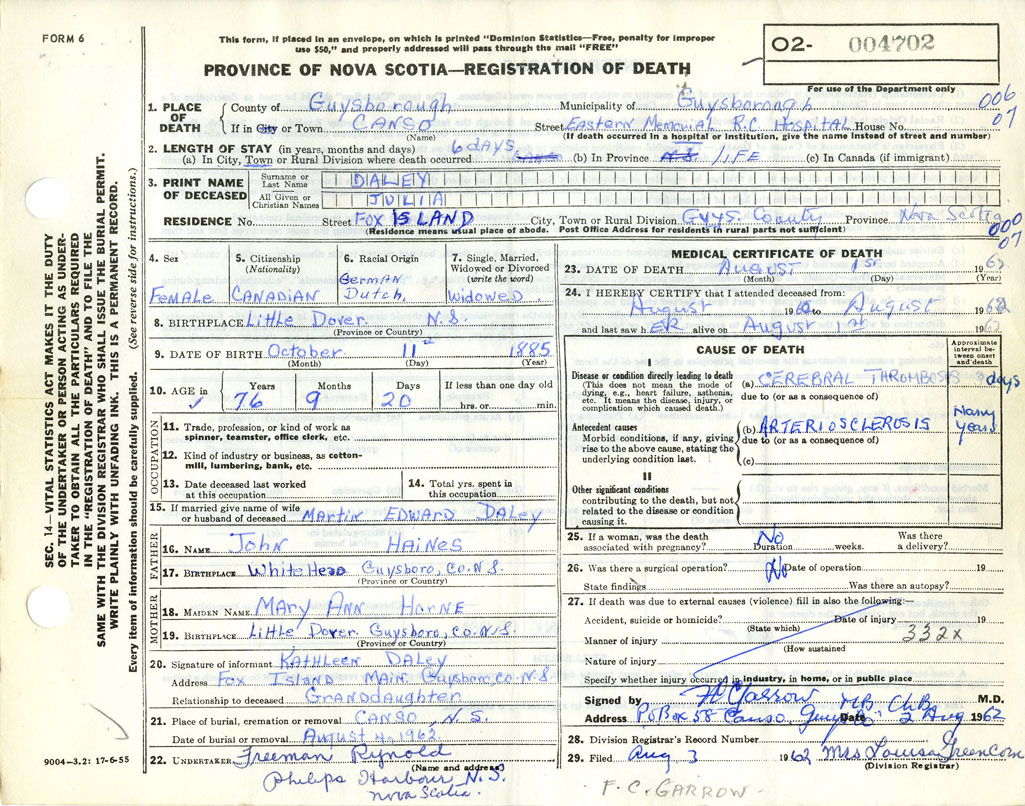 FORM 6
This form, if placed in an envelope, on which is printed "Dominion Statistics—Free, penalty for improper
use $50," and properly addressed will pass through the mail "FREE"
O2- 004702
PROVINCE OF NOVA SCOTIA—REGISTRATION OF DEATH
For use of the Department only
006
07
1. PLACE OF DEATH County of Guysborough Municipality of Guysborough
If in City or Town CANSO Street Eastern Memorial R.C. Hospital House No.
(Name) (If death occurred in a hospital or institution, give the name instead of street and number)
2. LENGTH OF STAY (in years, months and days)
(a) In City, Town or Rural Division where death occurred 6 days (b) In Province LIFE (c) In Canada (if immigrant)
3. PRINT NAME OF DECEASED Surname or Last Name DALEY
All Given or Christian Names JULIA
RESIDENCE No. Street FOX ISLAND City, Town or Rural Division Guys. County Province Nova Scotia
(Residence means usual place of abode. Post Office Address for residents in rural parts not sufficient)
000
07
4. Sex 5. Citizenship (Nationality) 6. Racial Origin 7. Single, Married, Widowed or Divorced (write the word)
Female CANADIAN German Dutch. Widowed.
8. BIRTHPLACE Little Dover N.S.
(Province or Country)
9. DATE OF BIRTH October 11th 1885
(Month) (Day) (Year)
10. AGE in Years Months Days If less than one day old
76 9 20 hrs. or min.
OCCUPATION
11. Trade, profession, or kind of work as
spinner, teamster, office clerk, etc.
12. Kind of industry or business, as cotton-
mill, lumbering, bank, etc.
13. Date deceased last worked at this occupation 14. Total yrs. spent in this occupation
15. If married give name of wife
or husband of deceased Martin EDWARD DALEY
FATHER
16. NAME John HAINES
17. BIRTHPLACE White Head Guysboro, Co. N.S.
(Province or Country)
MOTHER
18. MAIDEN NAME MARY ANN HORNE
19. BIRTHPLACE Little Dover Guysboro, Co. N.S.
(Province or Country)
20. Signature of informant KATHLEEN DALEY
Address Fox Island MAIN Guysboro, Co. N.S.
Relationship to deceased GRANDdAUGHTER
21. Place of burial, cremation or removal CANSO, N.S.
Date of burial or removal AUGUST 4, 1962
22. UNDERTAKER Freeman Rynold
(Name and address)
Philips Harbour N.S.
Nova Scotia.
9004—3.2: 17-6-55
SEC. 14—VITAL STATISTICS ACT MAKES IT THE DUTY
OF THE UNDERTAKER OR PERSON ACTING AS UNDER-
TAKER TO OBTAIN ALL THE PARTICULARS REQUIRED
IN THE "REGISTRATION OF DEATH" AND TO FILE THE
SAME WITH THE DIVISION REGISTRAR WHO SHALL ISSUE THE BURIAL PERMIT.
WRITE PLAINLY WITH UNFADING INK. THIS IS A PERMANENT RECORD.
Every item of information should be carefully supplied. (See reverse side for instructions.)
MEDICAL CERTIFICATE OF DEATH
23. DATE OF DEATH AUGUST 1st 1962
(Month) (Day) (Year)
24. I HEREBY CERTIFY that I attended deceased from:
August 19 to August 1962
and last saw hER alive on August 1st 1962
CAUSE OF DEATH
Approximate interval between onset and death
I
Disease or condition directly leading to death
(This does not mean the mode of
dying, e.g., heart failure, asthenia,
etc. It means the disease, injury, or
complication which caused death.)
(a) CEREBRAL THROMBOSIS days
due to (or as a consequence of)
Antecedent causes
Morbid conditions, if any, giving
rise to the above cause, stating the
underlying condition last.
(b) ARTERIOSCLEROSIS Many years
due to (or as a consequence of)
(c)
II
Other significant conditions
contributing to the death, but not
related to the disease or condition
causing it.
25. If a woman, was the death No Was there
associated with pregnancy? Duration weeks. a delivery?
26. Was there a surgical operation? No Date of operation 19
State findings Was there an autopsy?
27. If death was due to external causes (violence) fill in also the following:—
Accident, suicide or homicide? Date of injury 19
(State which) 332X
Manner of injury
(How sustained
Nature of injury
Specify whether injury occurred in industry, in home, or in public place
Signed by F C Garrow M.B. Ch.B. M.D.
Address P.O. Box 58 Canso, Guys Co Date 2 Aug 1962
28. Division Registrar's Record Number
29. Filed Aug 3 1962 Mrs Louisa GreenCorn
(Division Registrar)
F. C. GARROW